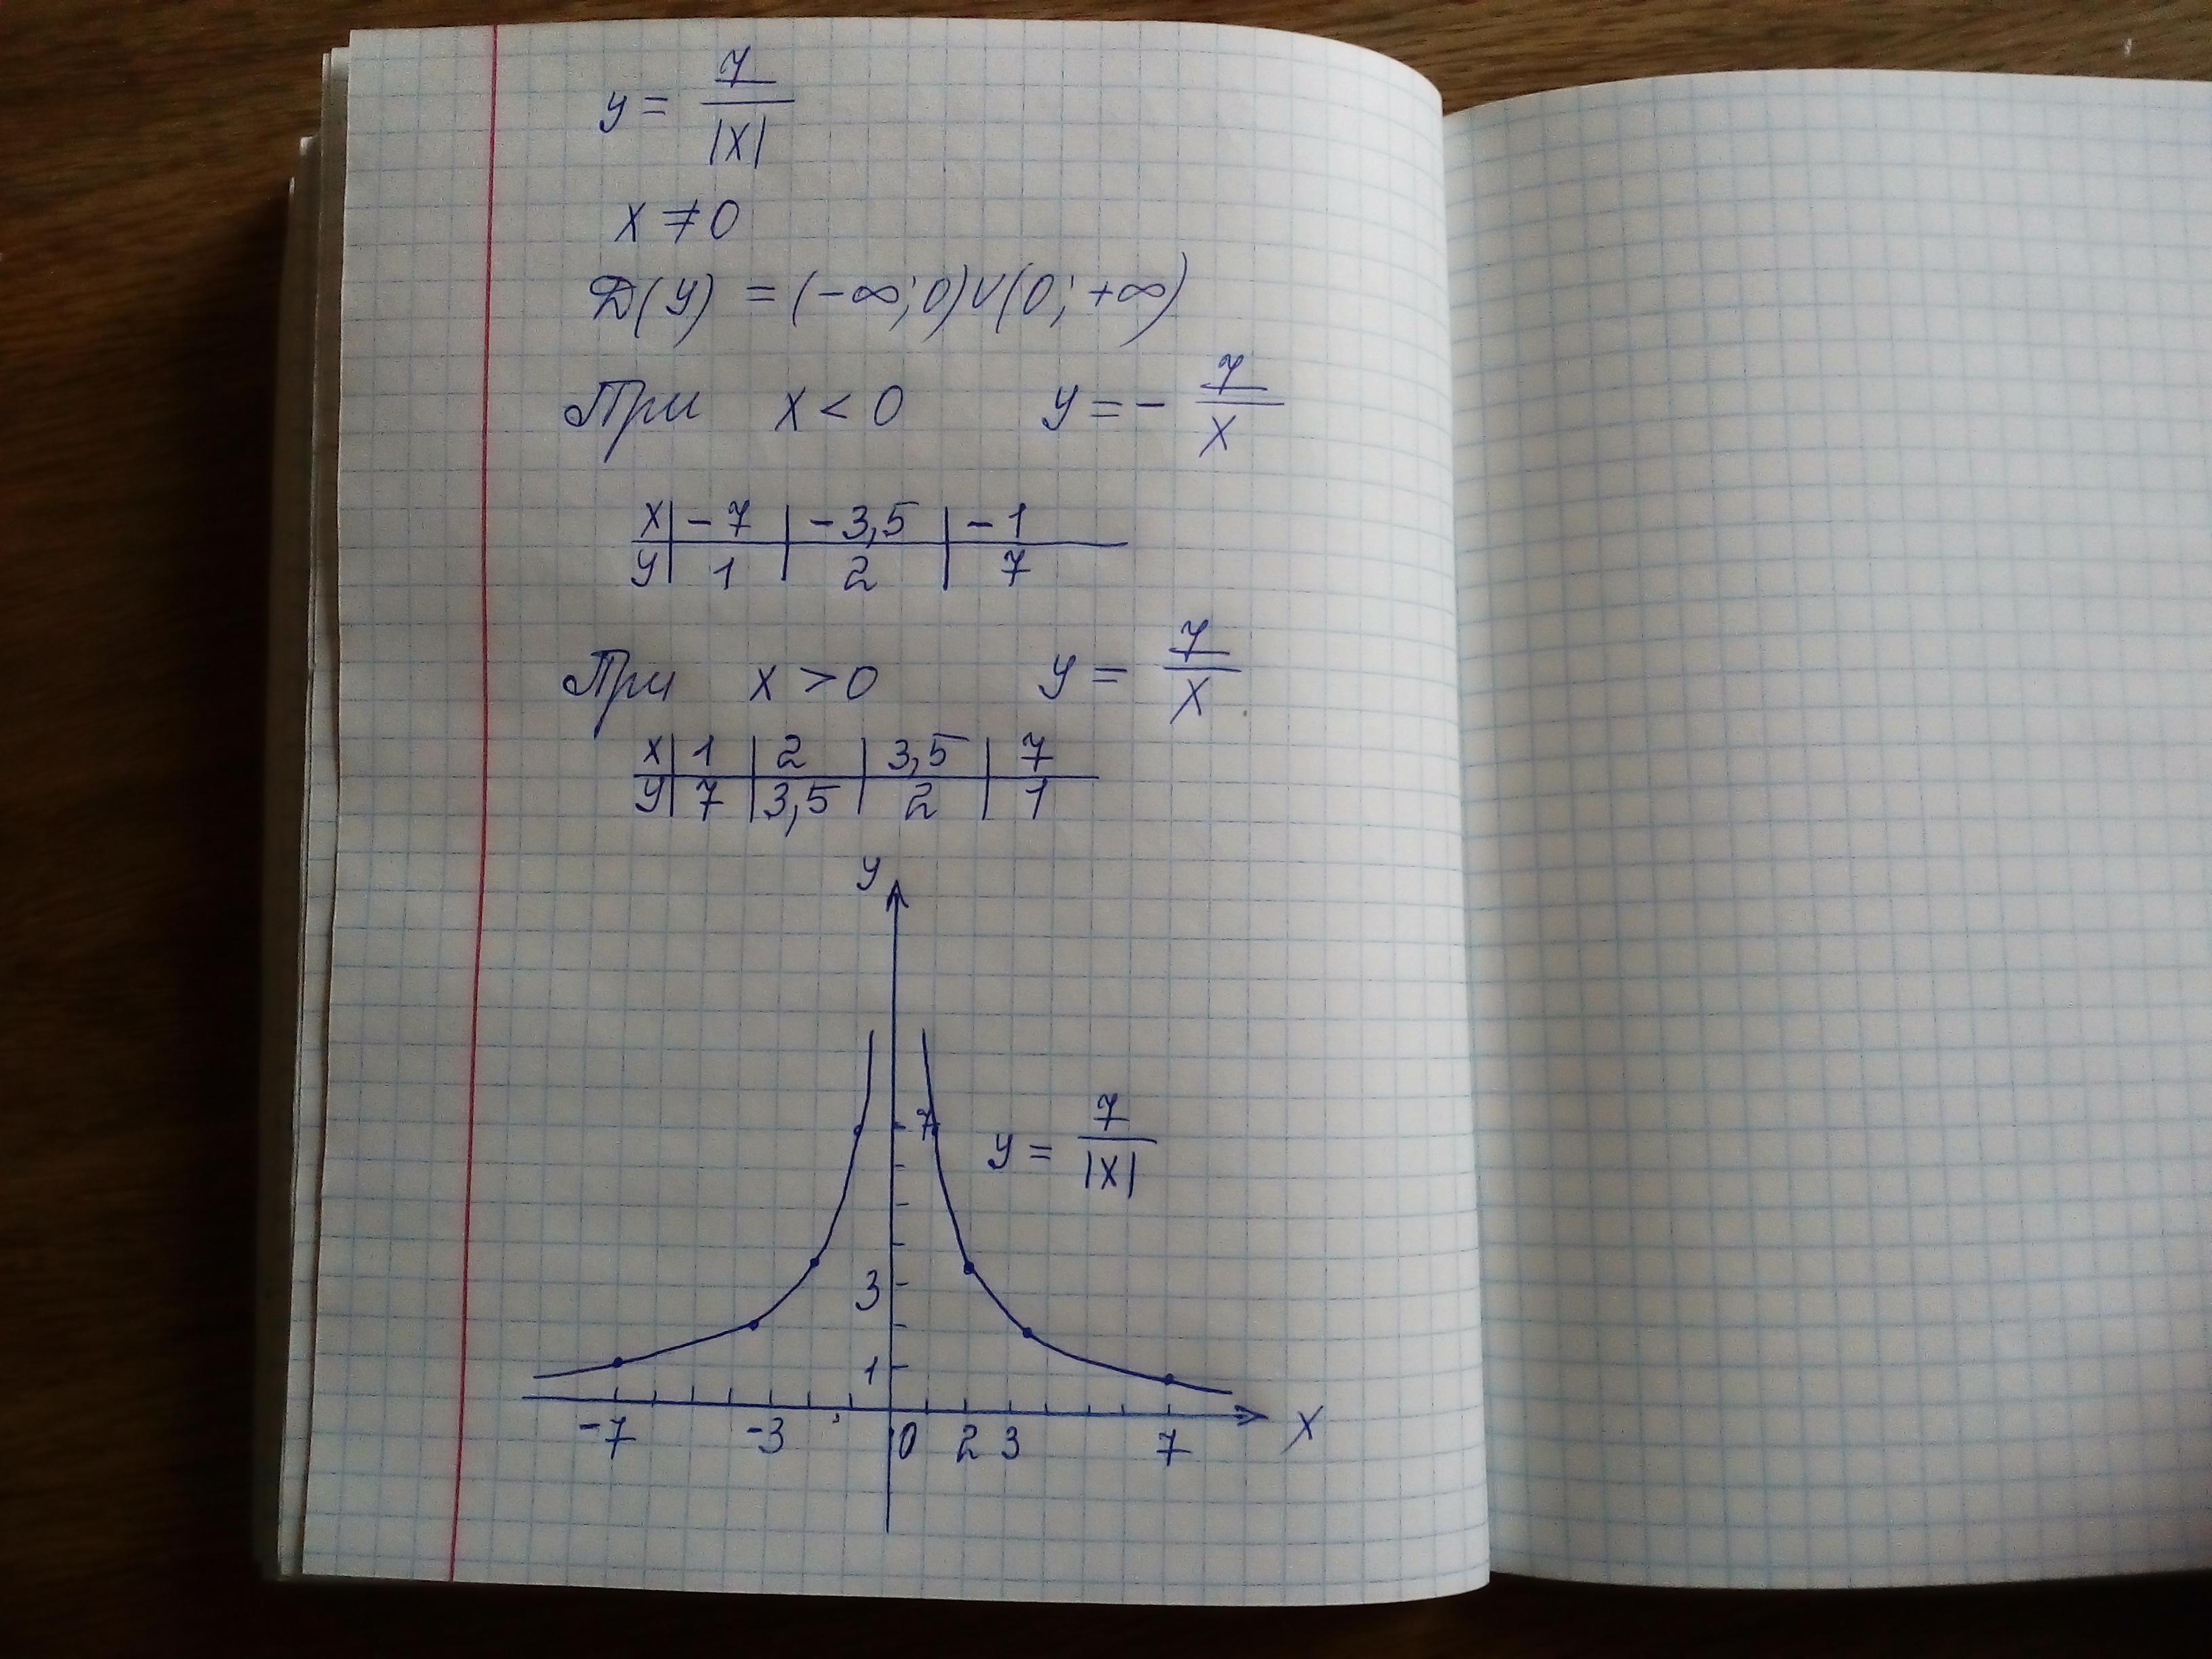 y = 7/|x|
x ≠ 0
D(y) = (-∞; 0)∪(0; +∞)
При x < 0 y = - 7/x
x | -7 | -3,5 | -1
y | 1 | 2 | 7
При x > 0 y = 7/x
x | 1 | 2 | 3,5 | 7
y | 7 | 3,5 | 2 | 1
y
7 y = 7/|x|
3
1
-7 -3 0 2 3 7 x